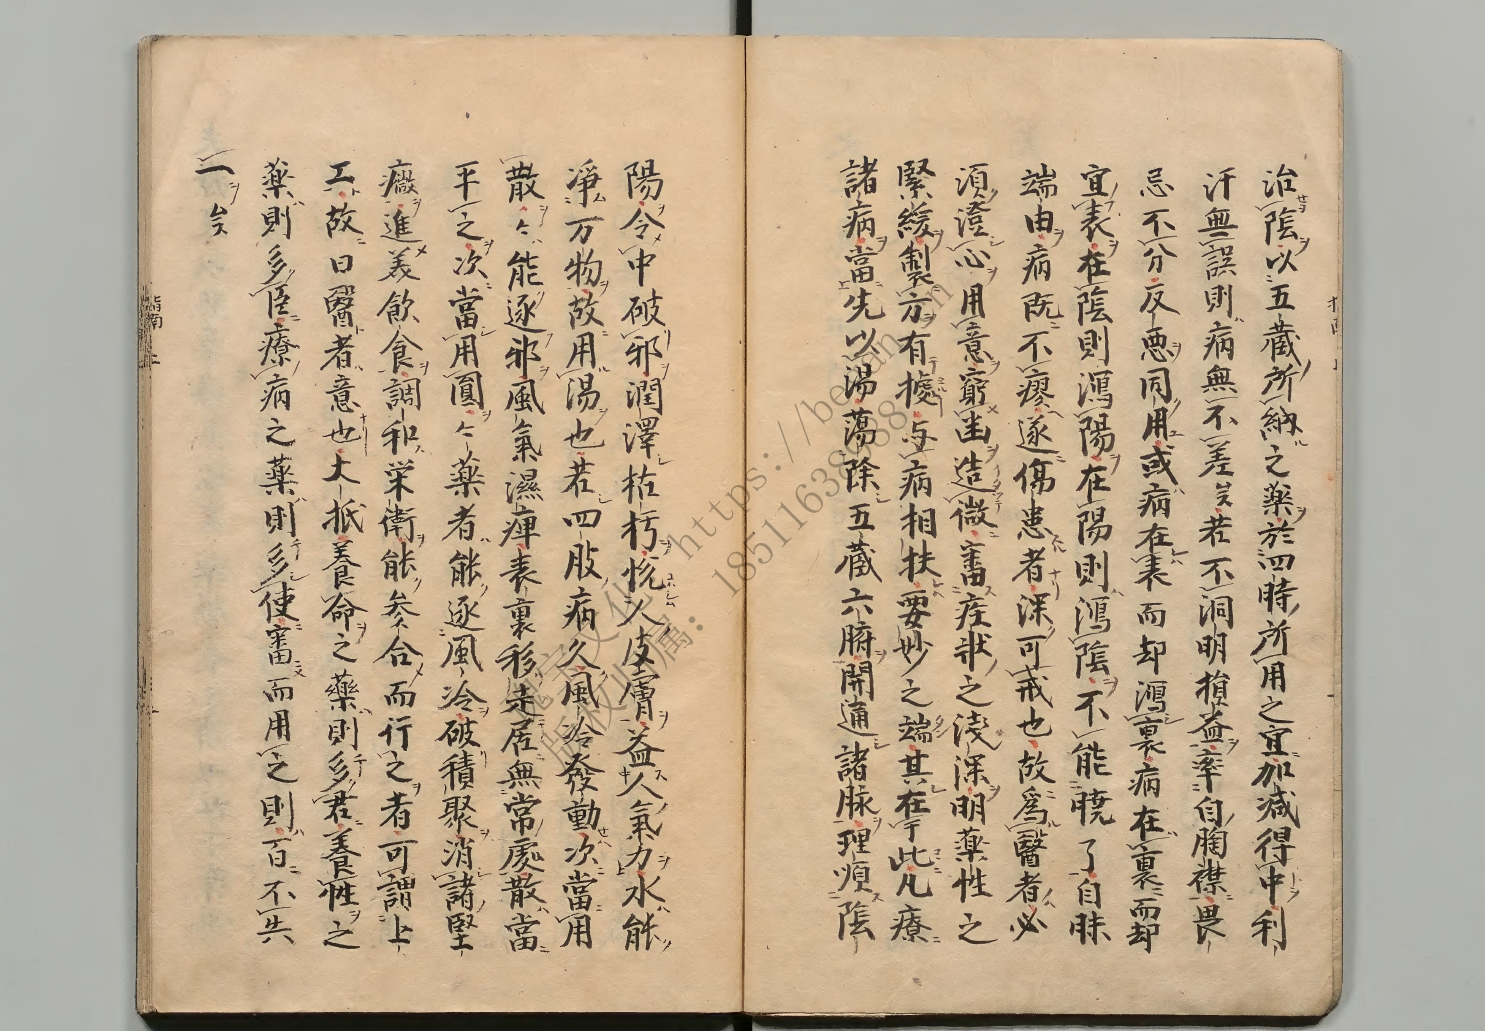 治陰以五蔵所納之薬於四時所用之宜加減得中利
汗無誤則病無不差矣若不洞明損益率自胸襟畏
忌不分反悪同用或病在表而却瀉裏病在裏而却
宜表在陰則瀉陽在陽則瀉陰不能暁了自昧
端由病既不瘳遂傷患者深可戒也故為醫者必
須澄心用意窮幽造微審疾状之浅深明薬性之
緊緩製方有據与病相扶要妙之端其在于此凡療
諸病當先以湯蕩除五蔵六腑開通諸脉理順陰
陽令中破邪潤澤枯朽悦人皮膚益人氣力水能
浄万物故用湯也若四肢病久風冷發動次當用
散々能逐邪風氣濕痺表裏移走居無常處散當
平之次當用圓々薬者能逐風冷破積聚消諸堅
癥進美飲食調和栄衛能参合而行之者可謂上
工故曰醫者意也大抵養命之薬則多君養性之
薬則多臣療病之薬則多使審而用之則百不失
一矣
指南 上
https://
18511638